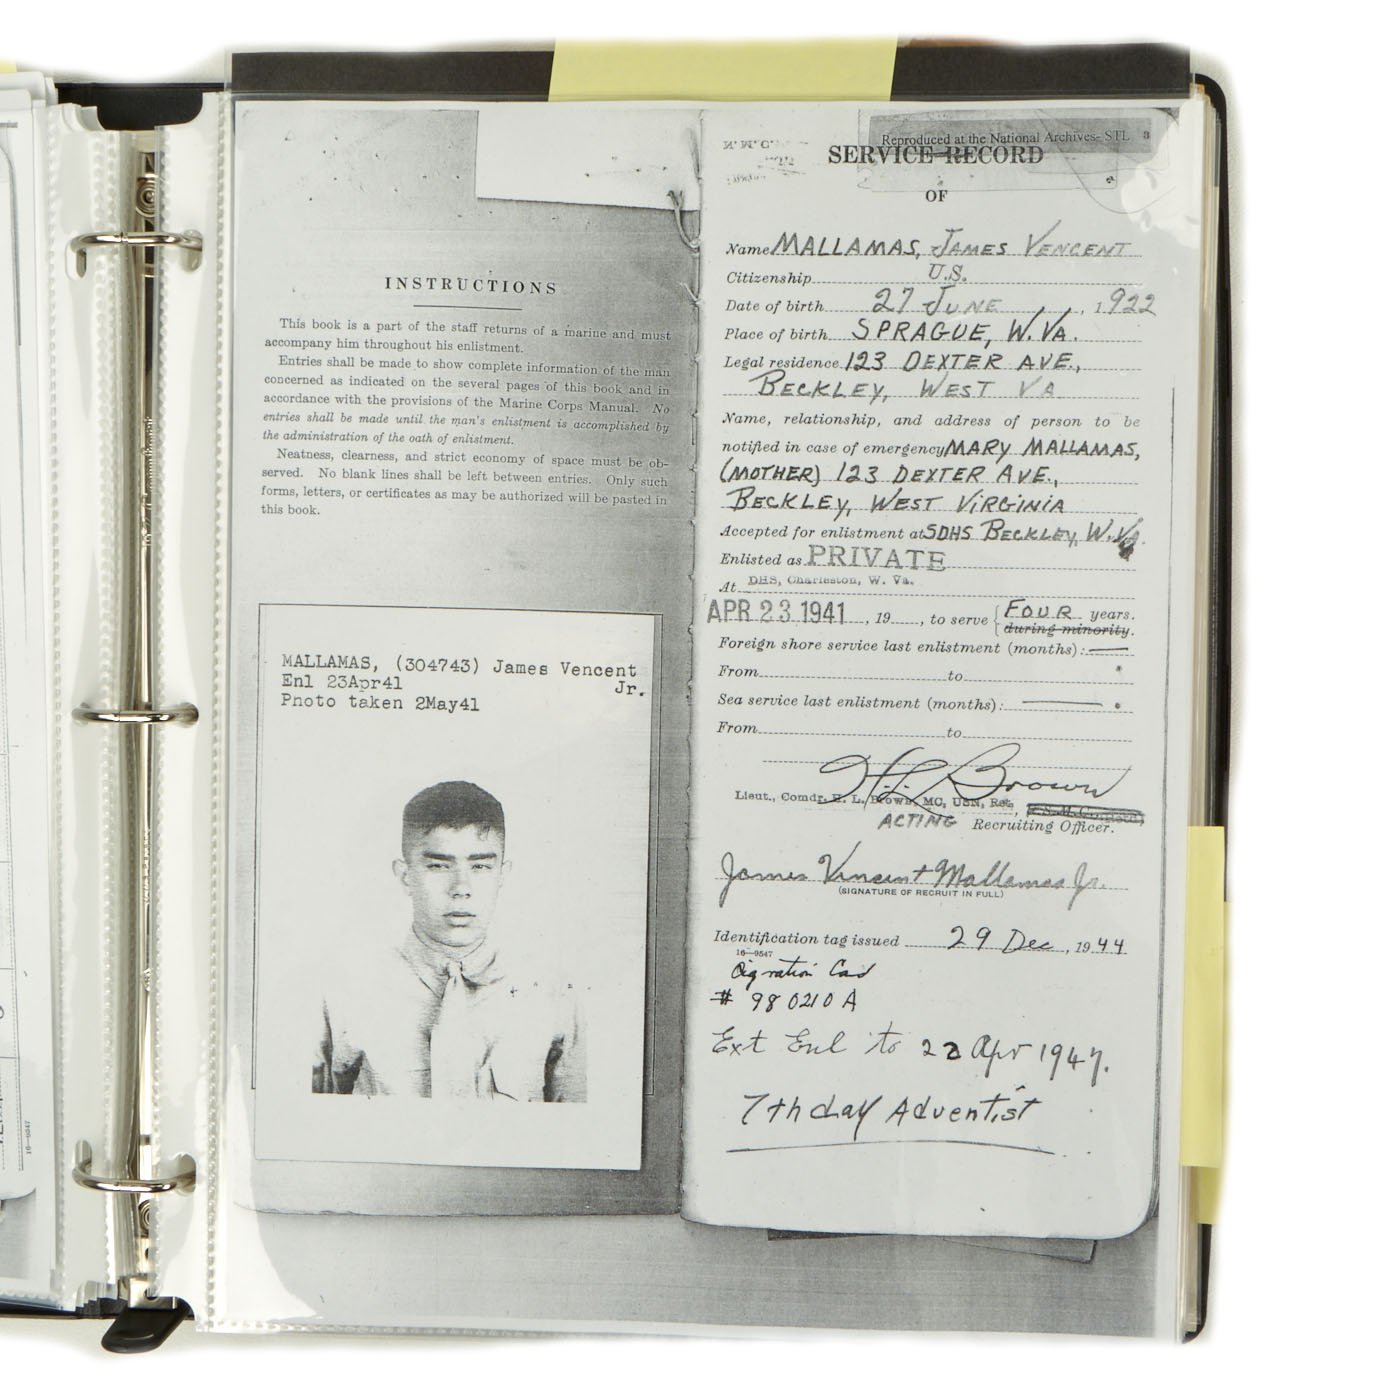 INSTRUCTIONS
This book is a part of the staff returns of a marine and must
accompany him throughout his enlistment.
Entries shall be made to show complete information of the man
concerned as indicated on the several pages of this book and in
accordance with the provisions of the Marine Corps Manual. No
entries shall be made until the man's enlistment is accomplished by
the administration of the oath of enlistment.
Neatness, clearness, and strict economy of space must be ob-
served. No blank lines shall be left between entries. Only such
forms, letters, or certificates as may be authorized will be pasted in
this book.
MALLAMAS, (304743) James Vencent
Enl 23Apr41 Jr.
Photo taken 2May41
Reproduced at the National Archives- STL
3
SERVICE RECORD
OF
Name MALLAMAS, JAMES VENCENT
Citizenship U.S.
Date of birth 27 JUNE, 1922
Place of birth SPRAGUE, W. VA.
Legal residence 123 DEXTER AVE.,
BECKLEY, WEST VA
Name, relationship, and address of person to be
notified in case of emergency MARY MALLAMAS,
(MOTHER) 123 DEXTER AVE.,
BECKLEY, WEST VIRGINIA
Accepted for enlistment at SDHS BECKLEY, W. VA.
Enlisted as PRIVATE
At DHS, Charleston, W. Va.
APR 23 1941, 19, to serve { FOUR years.
during minority.
Foreign shore service last enlistment (months): —
From to
Sea service last enlistment (months): —
From to
H. L. Brown
Lieut., Comdr. H. L. Brown, MC, USN, Ret,
ACTING Recruiting Officer.
James Vincent Mallamas Jr.
(SIGNATURE OF RECRUIT IN FULL)
Identification tag issued 29 Dec, 1944
16—9547
Card
# 980210 A
Ext Enl to 22 Apr 1947.
7th day Adventist
16-9547